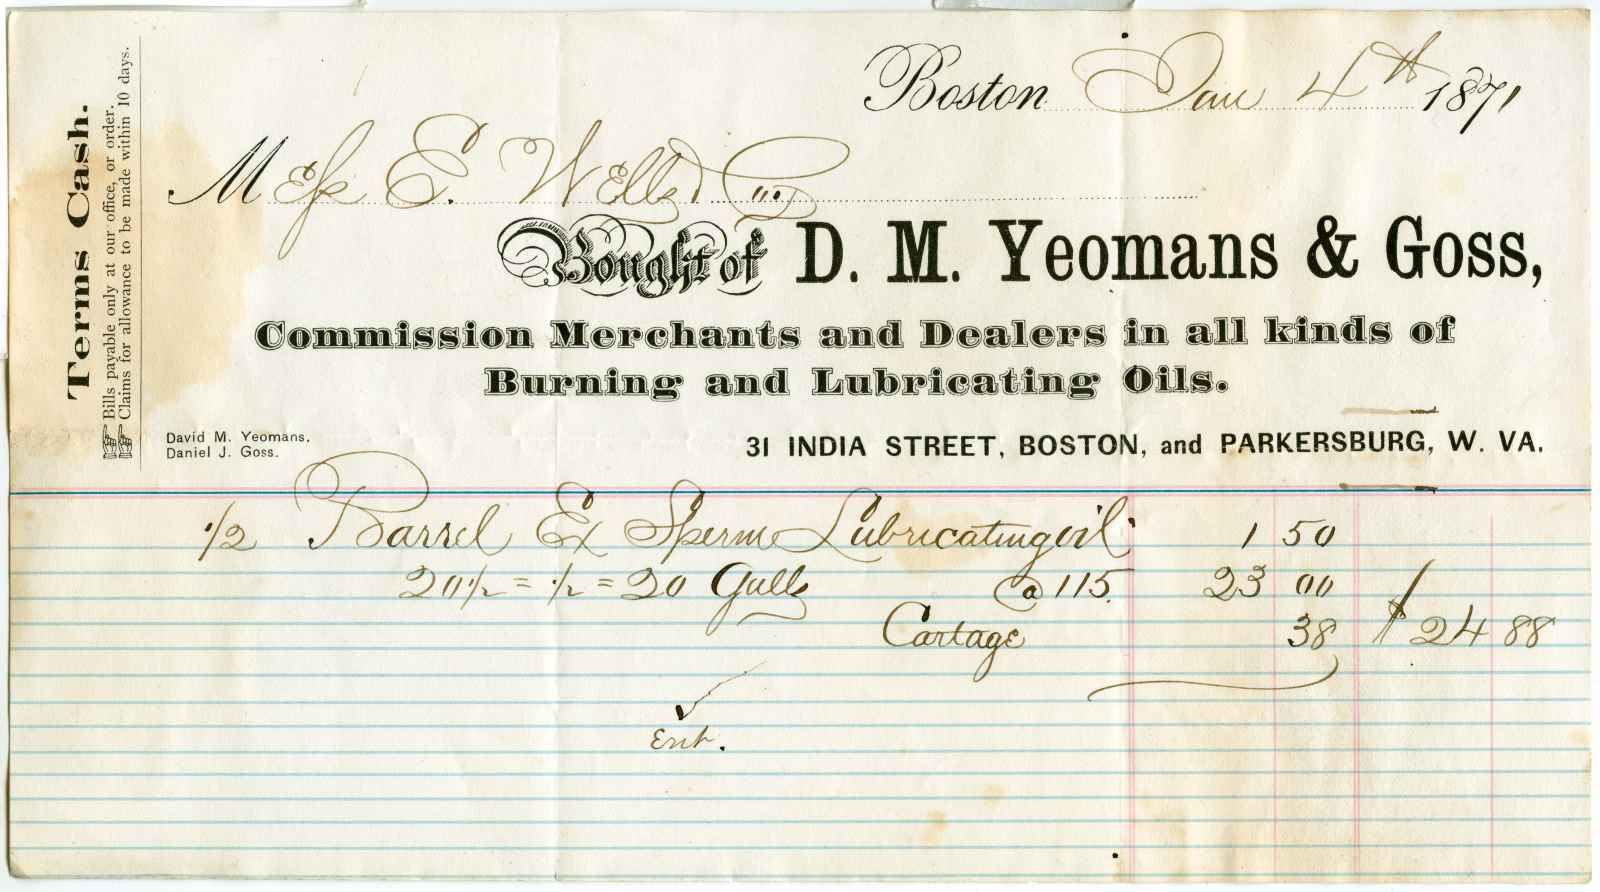 Boston Jan 4th 1871
Mess E. Wells & Co
Bought of D. M. Yeomans & Goss,
Commission Merchants and Dealers in all kinds of
Burning and Lubricating Oils.
31 INDIA STREET, BOSTON, and PARKERSBURG, W. VA.
David M. Yeomans.
Daniel J. Goss.
Terms Cash.
Bills payable only at our office, or order.
Claims for allowance to be made within 10 days.
1/2 Barrel Ex Sperm Lubricating oil 1 50
20 1/2 = 1/2 = 20 Galls @ 115. 23 00
Cartage 38 $ 24 88
Ent.